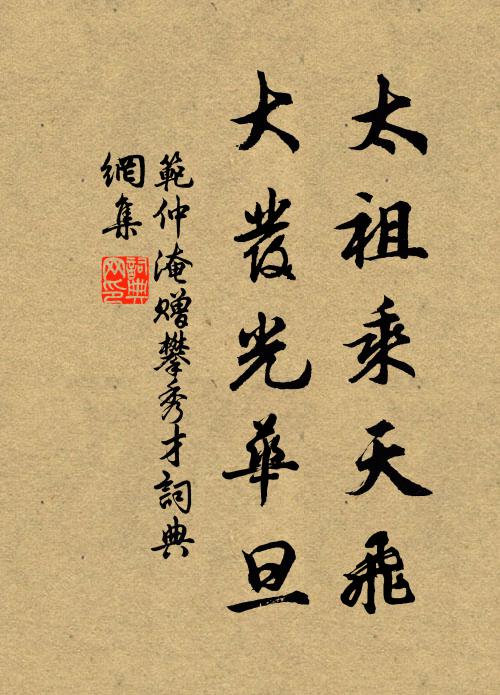 太祖乘天飛
大發光華旦
範仲淹贈攀秀才詞典
網集
詞典網印